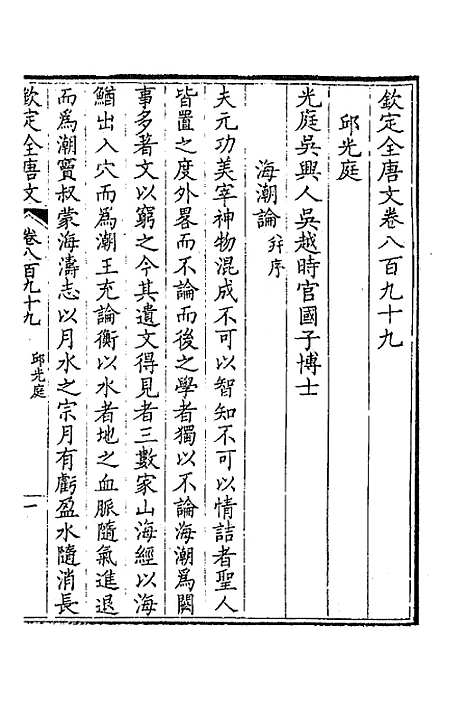 欽定全唐文卷八百九十九
邱光庭
光庭吳興人吳越時官國子博士
海潮論 并序
夫元功美宰神物混成不可以智知不可以情詰者聖人
皆置之度外畧而不論而後之學者獨以不論海潮爲闕
事多著文以窮之今其遺文得見者三數家山海經以海
鰌出入穴而爲潮王充論衡以水者地之血脈隨氣進退
而爲潮竇叔蒙海濤志以月水之宗月有虧盈水隨消長
欽定全唐文 卷八百九十九 邱光庭 一